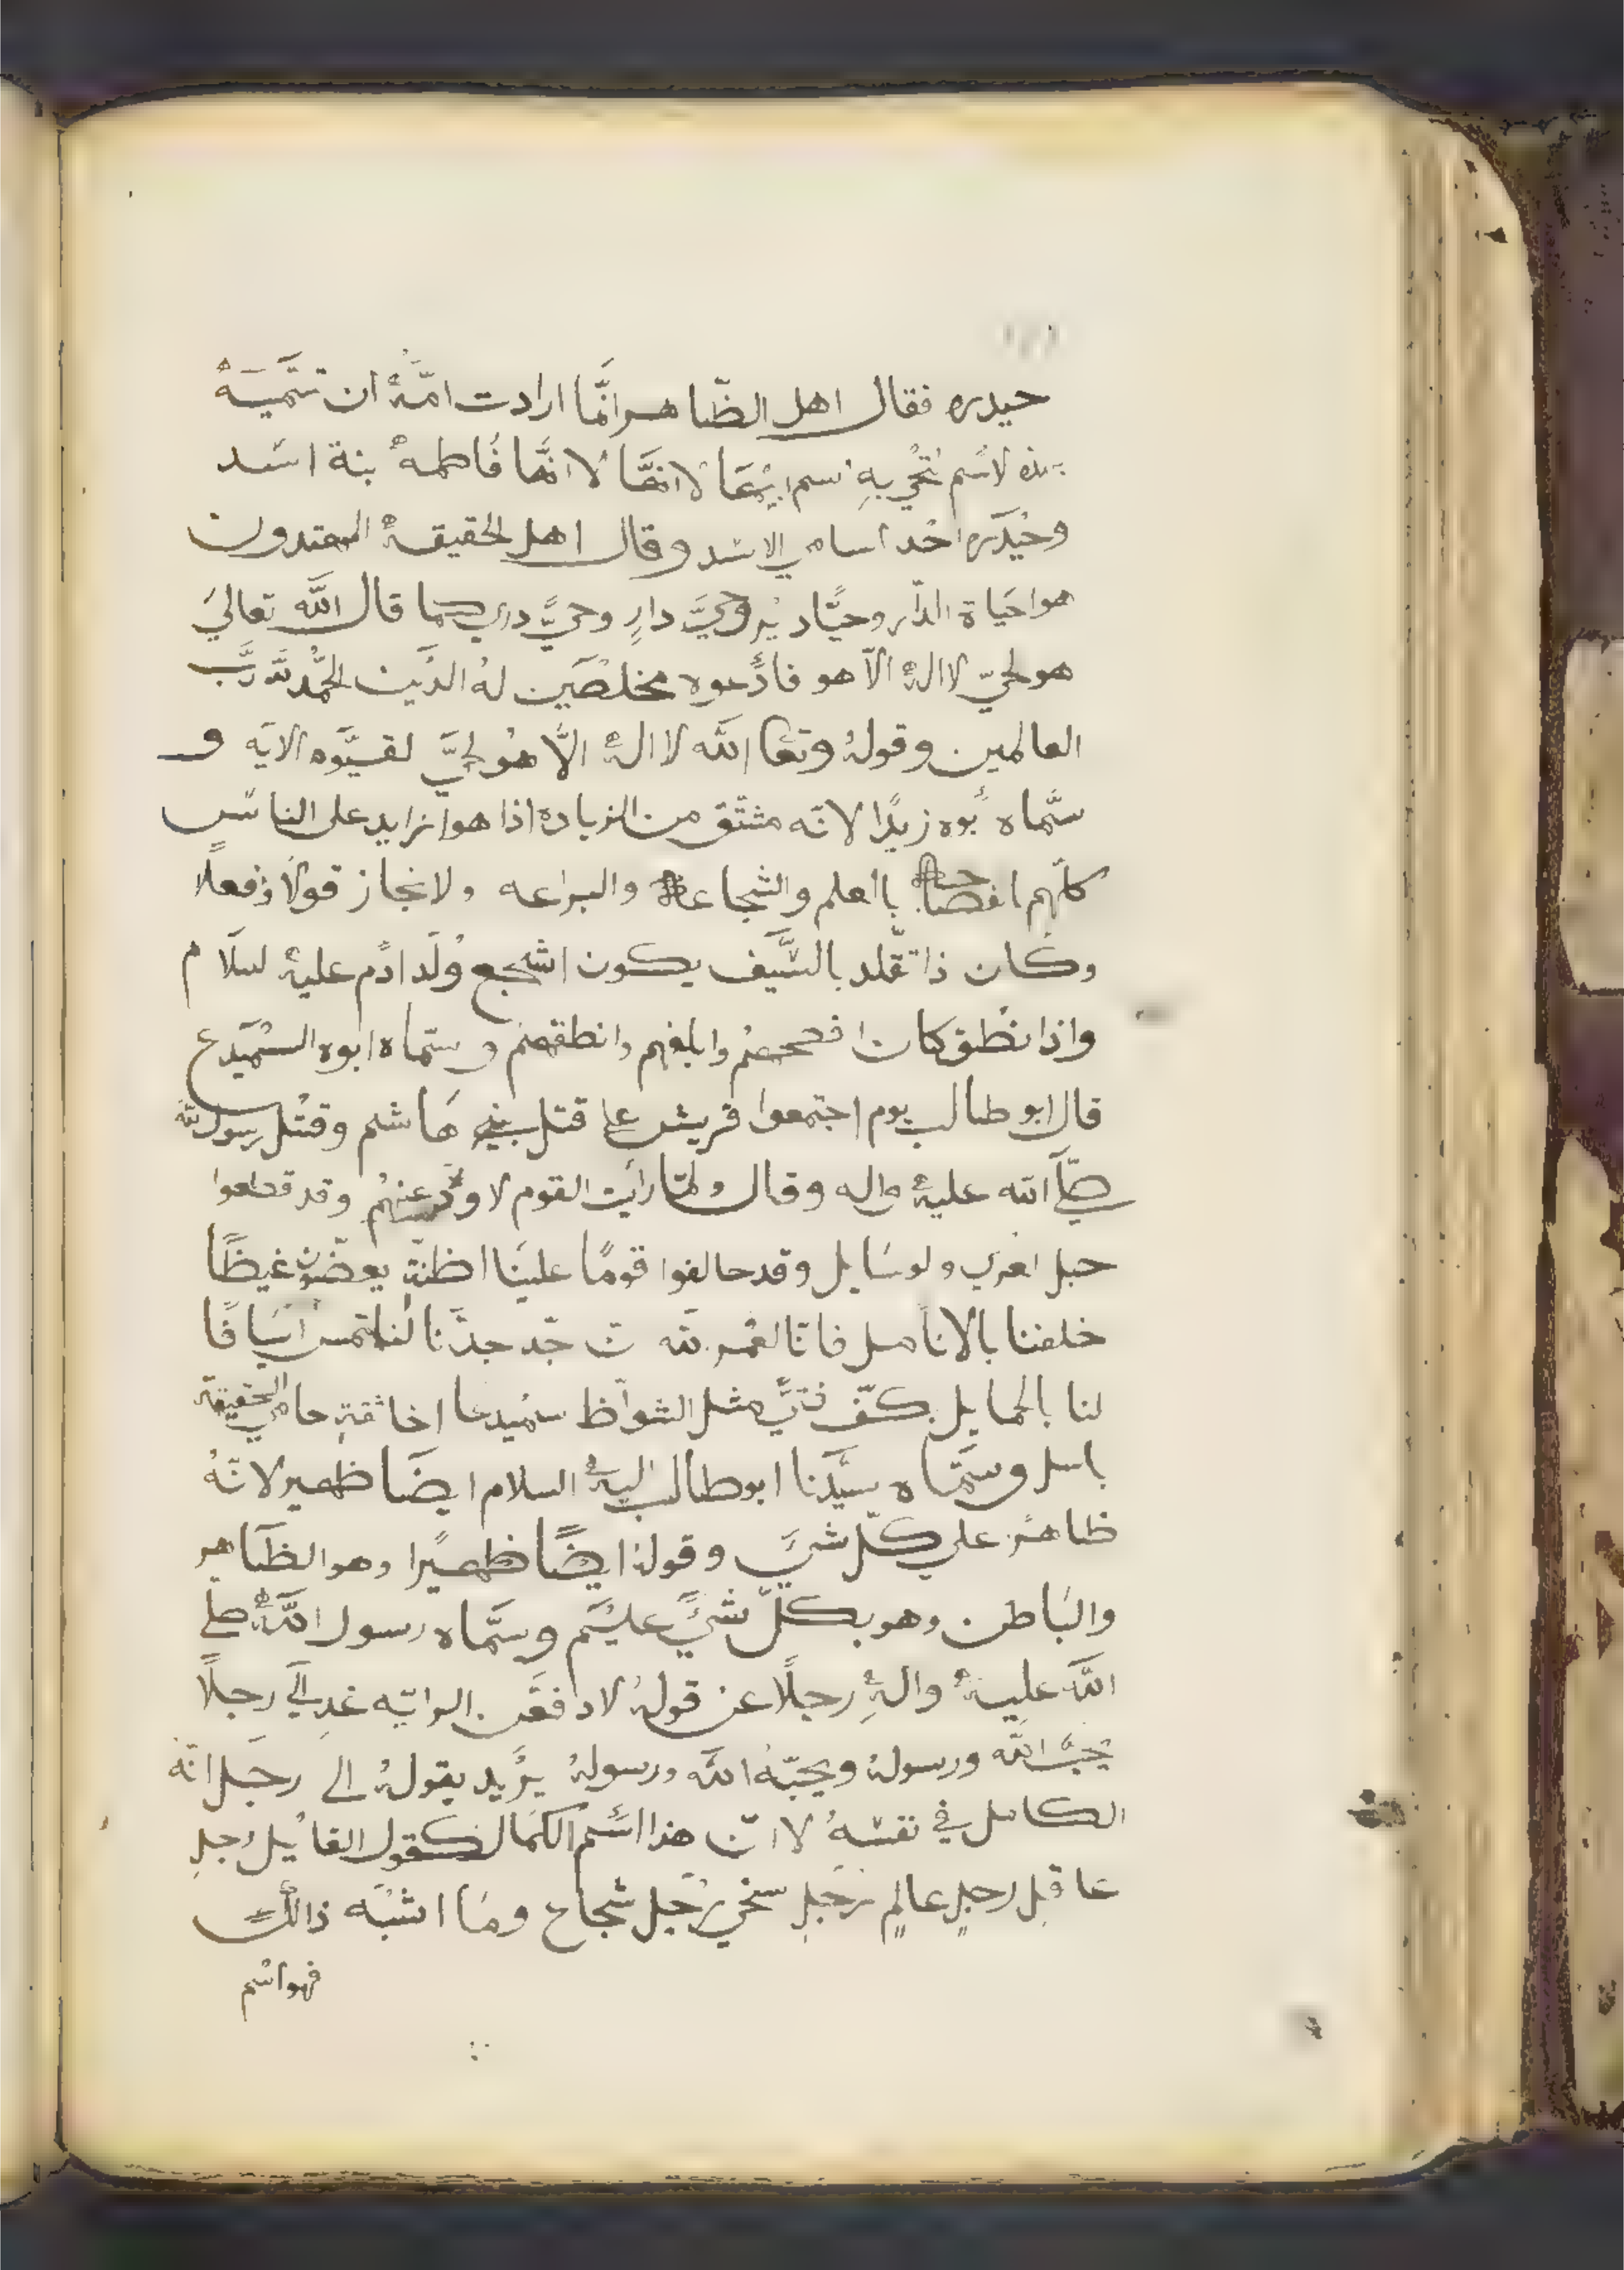 حيدره فقال اهل الظّاهر انّما ارادت امّهُ ان تسَمّيَهُ
بهذه لاسُم اسم ابيْها لانهّا لا انهّا فُاطمهُ بنة اسَد
وحَيْدَره احْد اسامي الاسَد وقال اهل لحقيقهُ المهتدون
هو احَياة الدّار وحيًّا دَيْر وحيَّ دارٍ وحيًّ دري كما قال اللّه تعاليَ
هو لحيّ لا الهُ الآ هو فادًعوه مخلصَين لهُ الدّين الحَمْد للّه ربَّ
العالمين وقولهُ وتعا اللّه لا الهُ الّا هُو لحيَّ لقيّوَه الايَه و
سمَّاه بُوه زيدًا لانّه مشتّق من الزياده اذا هوا زايد على الناسَ
كلّهم افصاحهً باالعلم والشجاعهْ والبراعه ولانجاز قولًا وفعلًا
وكان ذا تقّلد بالسَّيَف يكون اشجع وُلَد ادًم عليهُ لسَلَام
واذا نطْق كان افصحهمْ وابلغهم وانطقهمْ وسمّاه ابوه السّمَيْدع
قال ابو طالب يوم اجتمعوا قريش عاِ قتل بنيِ هاشم وقتْل رسول اللّه
صلّيَ اللّه عليهُ واله وقال ولمّا رايت القوم لا ودّ عنهمُ وقد قطعوا
حبل العري ولوسَايل وقد حالفوا قومًا علينَا اظنّة يعضّون غيظًا
خلفنا بالاناَمل فانّا لعُمر للّه ن جّد جدّنا لنلتمس اسَيافًا
لنا بالحمايل بكفّ فتيَّ مثل الشواّظ سمُيدعا اخا ثقةٍ حامي الحقيقة
باسل وسَمّاه سيّدَنا ابو طالب اليهُ السلام ايضَا ظهير لانّهُ
ظاهرٌ علي كلّ شيَّ وقولهُ ايضًا ظهيرًا وهو الظّاهر
والباَطن وهو بكلّ شيًَ عليْم وسمَّاه رسول اللّهُ صلي
اللّه عليهُ والهِ رجلًا عن قولهُ لادفعَن الرايّه غدٍ اليَ رجلًا
يحبُّ اللّه ورسولهُ ويحبّهُ اللّه ورسولهُ يرُيد بقولهُ الى رجَل انّه
الكامل في نفسَهُ لا انّ هذا اسُم الكمَال كقول القايل رُجلٍ
عاقلٍ رجلٍ عالمٍ رَجلٍ سخيٍ رَجل شجاع ومَا اشبْه ذالكً
فهو اسُم